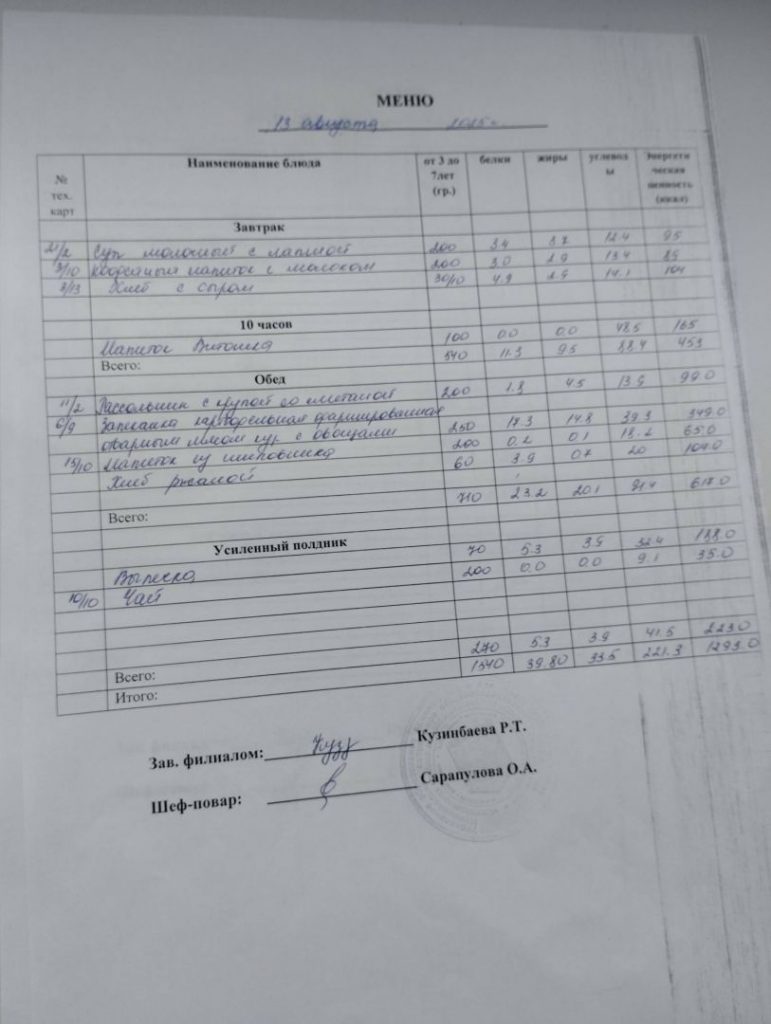 МЕНЮ
13 августа 2025 г
№ тех. карт Наименование блюда от 3 до 7лет (гр.) белки жиры углевод ы Энергети ческая ценность (ккал)
Завтрак
21/2 Суп молочный с лапшой 200 3.4 3.7 12.4 95
3/10 кофейный напиток с молоком 200 3.0 2.9 13.4 89
3/13 Хлеб с сыром 30/10 4.9 2.9 14.1 104
10 часов
Напиток Витошка 100 0.0 0.0 48.5 165
Всего: 540 11.3 9.5 88.4 453
Обед
11/2 Рассольник с крупой со сметаной 200 1.8 4.5 13.9 99.0
6/9 Запеканка картофельная фаршированная
отварным мясом кур с овощами 250 17.3 14.8 39.3 349.0
15/10 Напиток из шиповника 200 0.2 0.1 18.2 65.0
Хлеб ржаной 60 3.9 0.7 20 104.0
Всего: 710 23.2 20.1 91.4 617.0
Усиленный полдник
Выпечка 70 5.3 3.9 32.4 188.0
10/10 Чай 200 0.0 0.0 9.1 35.0
Всего: 270 5.3 3.9 41.5 223.0
Итого: 1540 39.80 33.5 221.3 1293.0
Зав. филиалом: Кузинбаева Р.Т.
Шеф-повар: Сарапулова О.А.